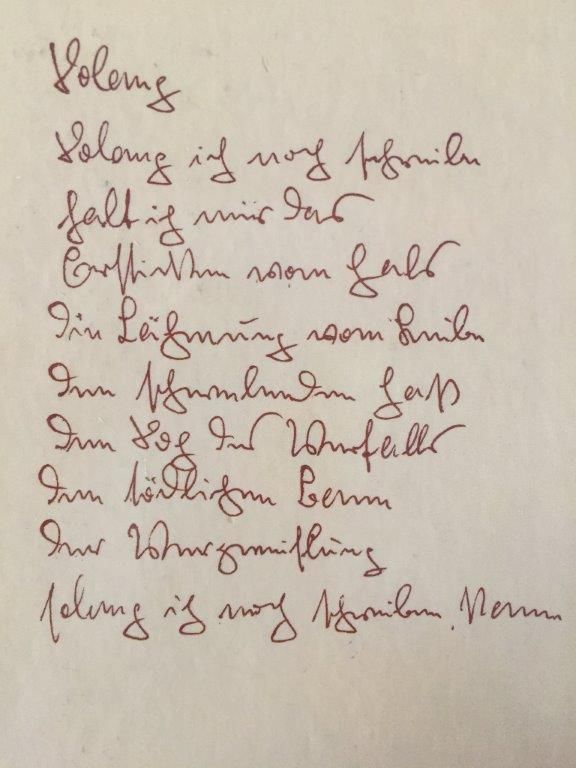 Solang
Solang ich noch schreibe
halt ich mir das
Ersticken vom Hals
die Lähmung vom Leibe
den schwelenden Haß
den Sog des Verfalls
den tödlichen Bann
der Verzweiflung
solang ich noch schreiben kann